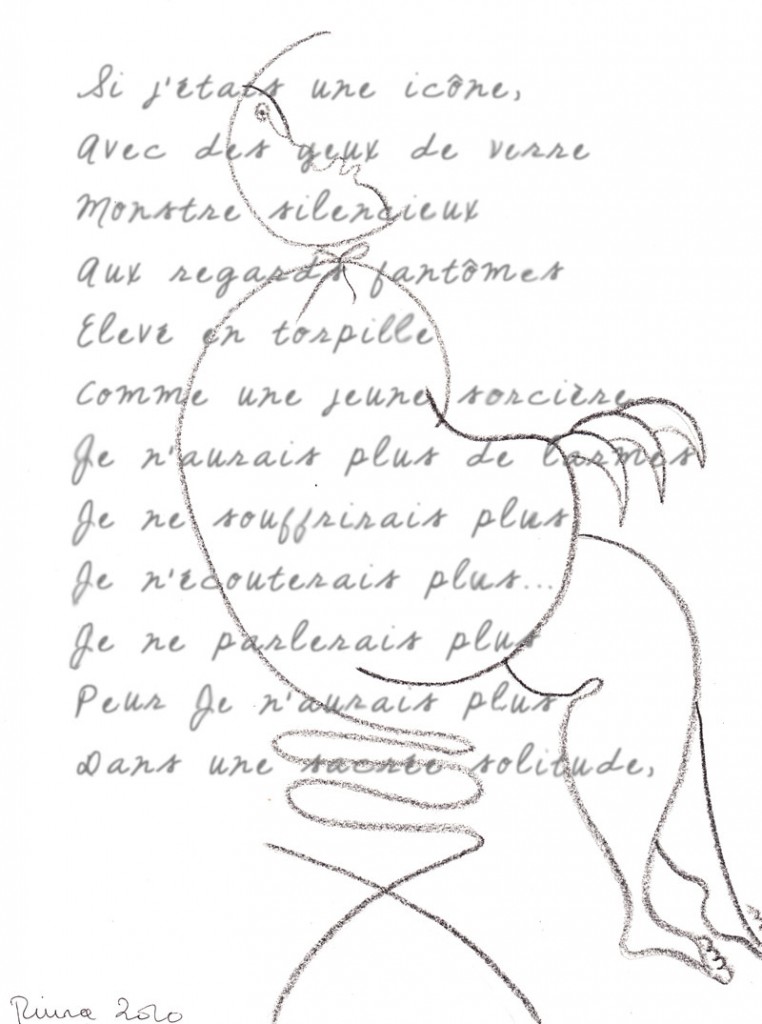 Si j'étais une icône,
Avec des yeux de verre
Monstre silencieux
Aux regards fantômes
Elevé en torpille
Comme une jeune sorcière
Je n'aurais plus de larmes
Je ne souffrirais plus
Je n'écouterais plus...
Je ne parlerais plus
Peur Je n'aurais plus
Dans une sacrée solitude,
2020